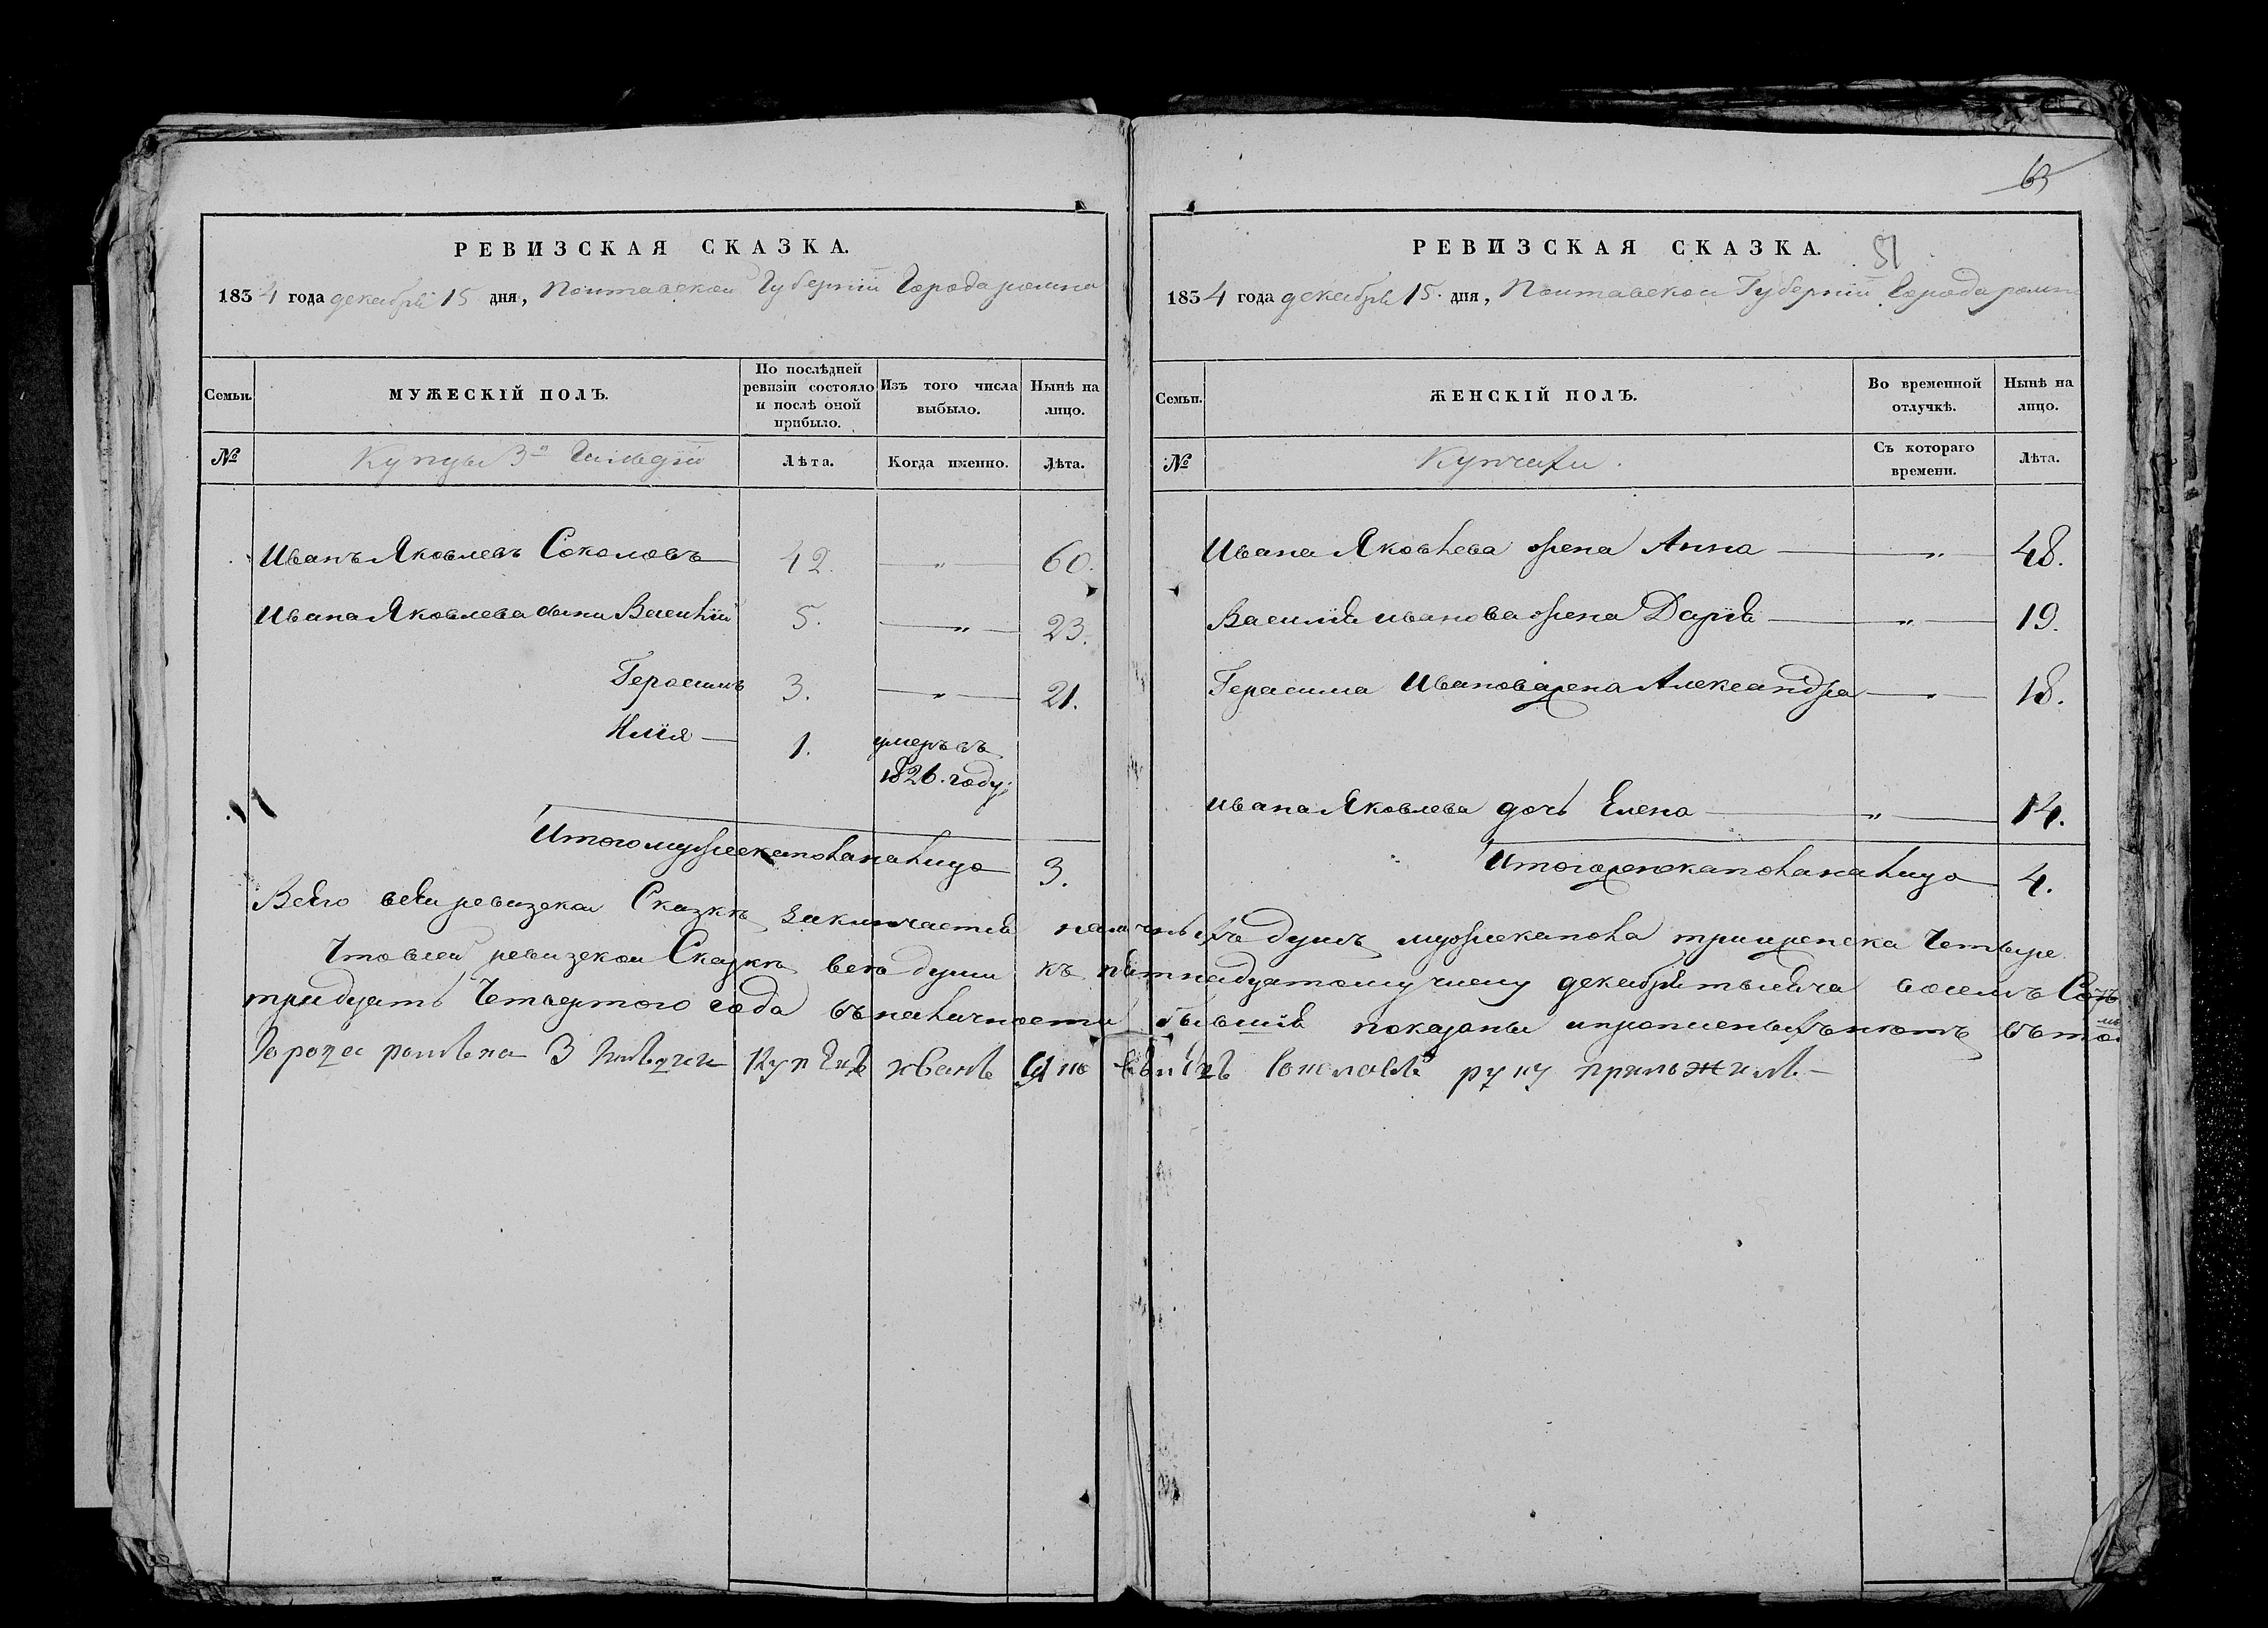 63
РЕВИЗСКАЯ СКАЗКА.
1834 года декабря 15 дня, Полтавской Губернии Города ромна
Семьи.
МУЖЕСКІЙ ПОЛЪ.
По послѣдней ревизіи состояло и послѣ оной прибыло.
Изъ того числа выбыло.
Нынѣ на лицо.
№
Купцы 3й Гильдіи
Лѣта.
Когда именно.
Лѣта.
Иванъ Яковлевъ Соколовъ 42. — „ — 60.
Ивана Яковлева сыны Василій 5. — „ — 23.
Герасимъ 3. — „ — 21.
Илія — 1. умеръ въ
1826. году
Итого мужеска пола на лицо 3.
РЕВИЗСКАЯ СКАЗКА.
51
1834 года декабря 15. дня, Полтавской Губерніи Города ромн
Семьи.
ЖЕНСКІЙ ПОЛЪ.
Во временной отлучкѣ.
Нынѣ на лицо.
№
Купчихи.
Съ котораго времени.
Лѣта.
Ивана Яковлева жена Анна — „ — 48.
Василія иванова жена Дарія — „ — 19.
Герасима Иванова жена Александра — „ — 18.
Ивана Яковлева дочь Елена — „ — 14.
Итого женска пола на лицо 4.
Всего въ сей ревизской Сказкѣ заключается наличныхъ душъ мужеска пола три и женска Четыре.
Что в сей ревизской Сказкѣ всѣ души къ пятнадцатому числу декабря тысяча восемъ Сотъ
тридцать Четвертого года въ наличности бывшія показаны и прописныхъ нѣтъ въ томъ
города ромна 3 гилдии Купецъ иванъ Яковлевъ Соколовъ руку приложилъ